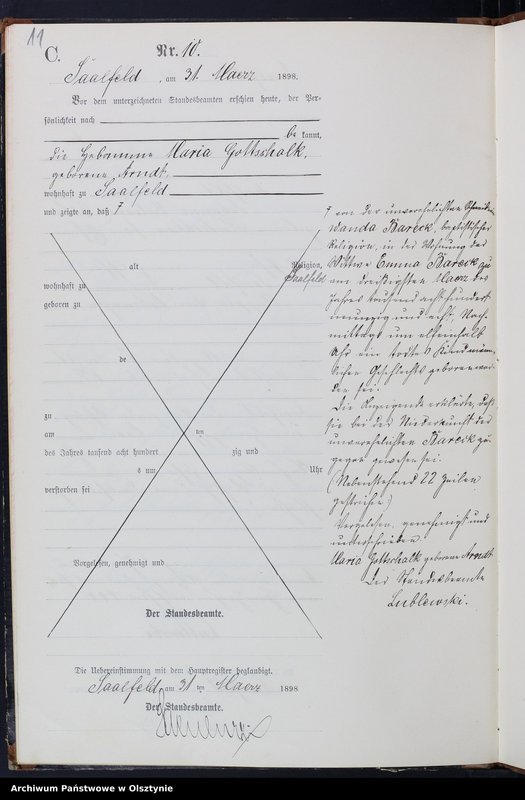 11
C.
Nr. 10.
Saalfeld, am 31. Maerz 1898.
Vor dem unterzeichneten Standesbeamten erschien heute, der Per-
sönlichkeit nach
be kannt,
die Hebamme Maria Gottschalk,
geborene Arndt,
wohnhaft zu Saalfeld
und zeigte an, daß
von der unverehelichten
Wanda Bareck, baptistischer
Religion, in der Wohnung der
Wittwe Emma Bareck zu
Saalfeld
am dreißigsten Maerz des
Jahres tausend acht hundert
neunzig und acht, Nach-
mittags um elfeinhalb
Uhr ein todtes Kind männ-
lichen Geschlechts geboren wor-
den sei.
Die Anzeigende erklärte, daß
sie bei der Niederkunft der
unverehelichten Bareck zu-
gegen gewesen sei.
(Nebenstehend 22 Zeilen
gestrichen.)
Vorgelesen, genehmigt und
unterschrieben
Maria Gottschalk geborene Arndt
Der Standesbeamte
Lublewski.
alt
Religion,
wohnhaft zu
geboren zu
de
zu
am
ten
des Jahres tausend acht hundert
zig und
s um
Uhr
verstorben sei
Vorgelesen, genehmigt und
Der Standesbeamte.
Die Uebereinstimmung mit dem Hauptregister beglaubigt.
Saalfeld, am 31 ten Maerz 1898
Der Standesbeamte.
Archiwum Państwowe w Olsztynie